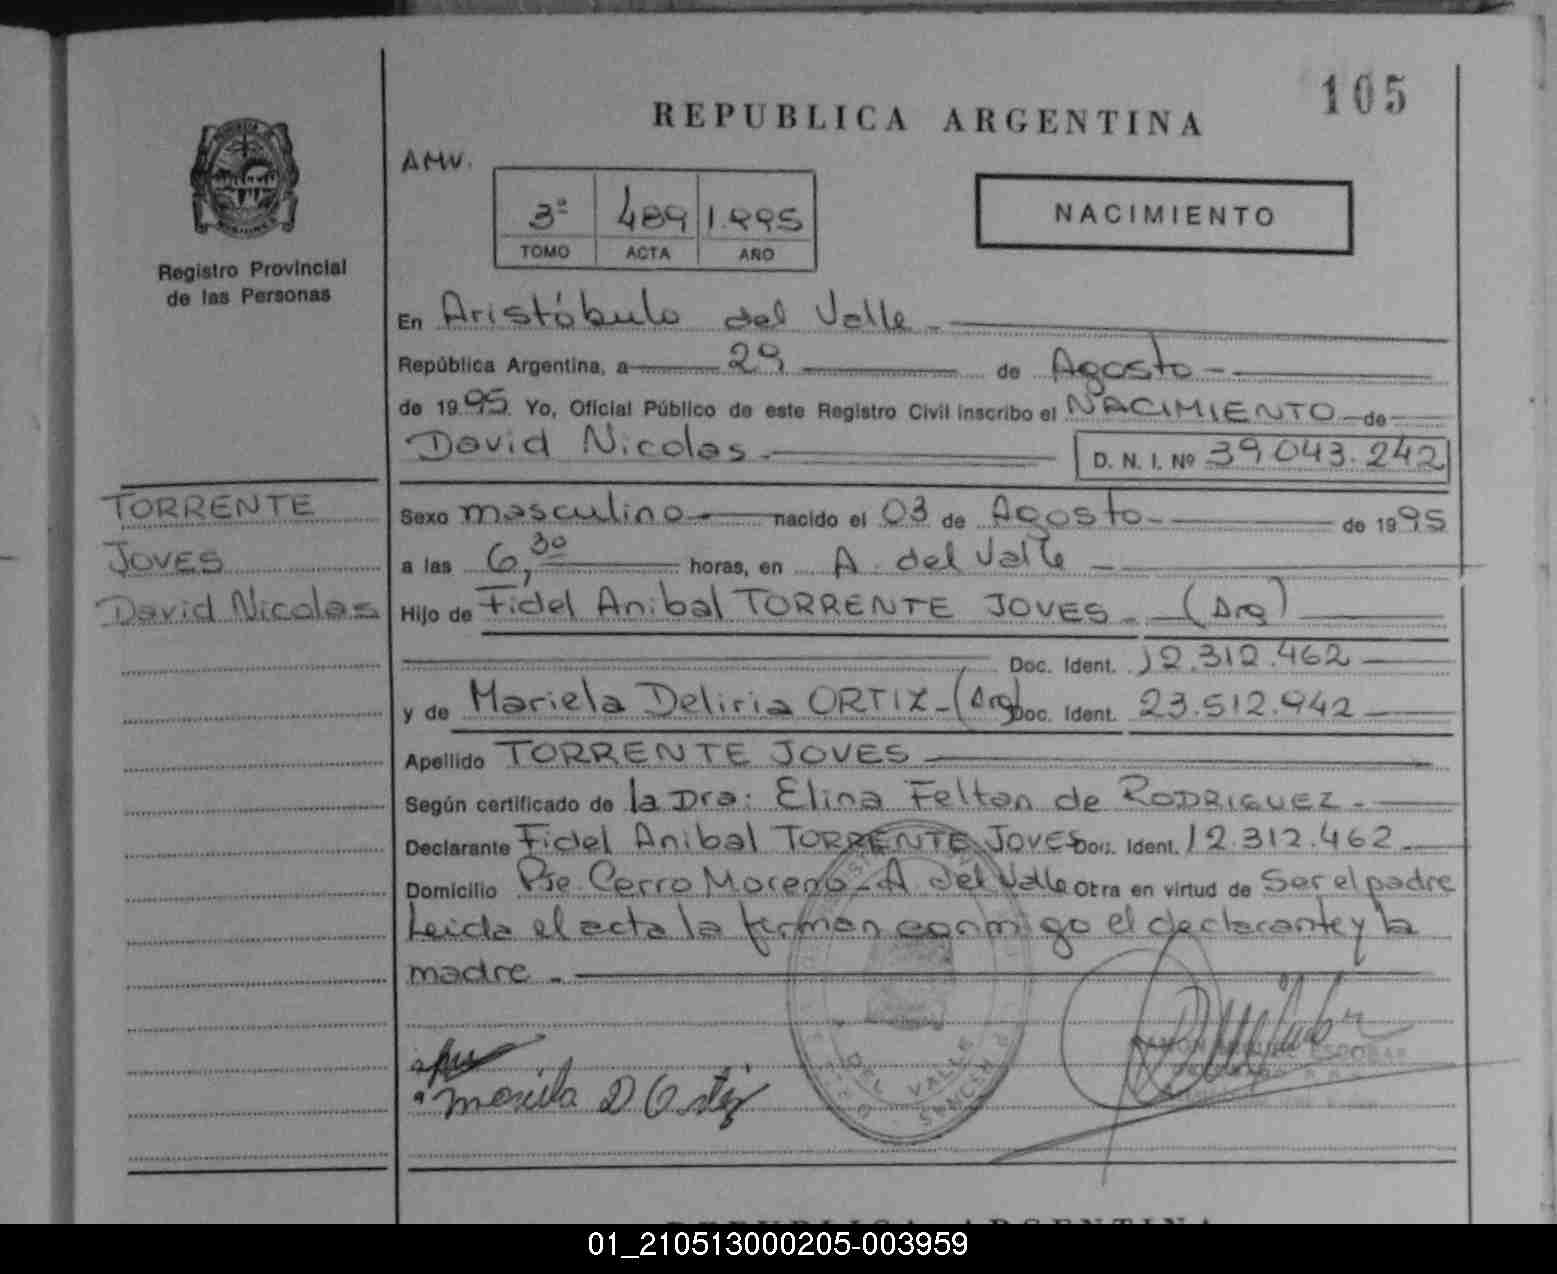 105
REPUBLICA ARGENTINA
AMV.
3º 489 1.995
TOMO ACTA AÑO
NACIMIENTO
Registro Provincial
de las Personas
En Aristóbulo del Valle
República Argentina, a 29 de Agosto
de 1995. Yo, Oficial Público de este Registro Civil inscribo el NACIMIENTO de
David Nicolas D. N. I. Nº 39.043.242
TORRENTE
JOVES
David Nicolas
Sexo masculino nacido el 03 de Agosto de 1995
a las 6,30 horas, en A. del Valle
Hijo de Fidel Anibal TORRENTE JOVES (Arg)
Doc. Ident. 12.312.462
y de Mariela Deliria ORTIZ - (Arg) Doc. Ident. 23.512.942
Apellido TORRENTE JOVES
Según certificado de la Dra: Elina Felton de RODRIGUEZ
Declarante Fidel Anibal TORRENTE JOVES Doc. Ident. 12.312.462
Domicilio Pje. Cerro Moreno - A del Valle Otra en virtud de Ser el padre
Leida el acta la firman conmigo el declarante y la
madre
DEL VALLE
MISIONES
ESCOBAR
REPUBLICA ARGENTINA
01_210513000205-003959